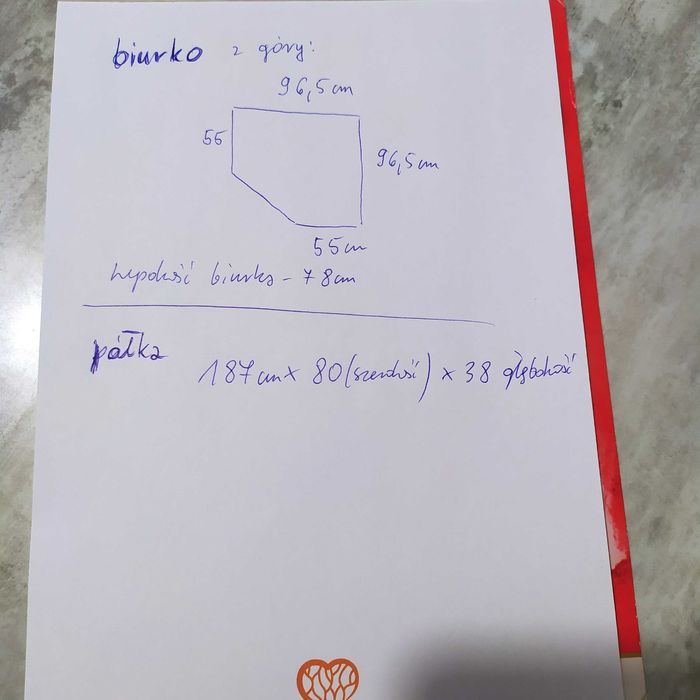 biurko z góry:
96,5 cm
55
96,5 cm
55 cm
wysokość biurka - 78 cm
półka
187 cm x 80 (szerokość) x 38 głębokość